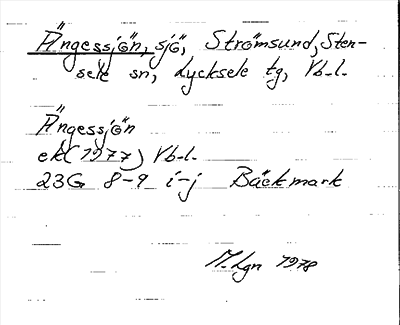 Ängessjön, sjö, Strömsund, Sten-
sele sn, Lycksele tg, Vb-l.
Ängessjön
ek (1977) Vb-l.
23G 8-9 i-j Bäckmark
M.Lgn 1978